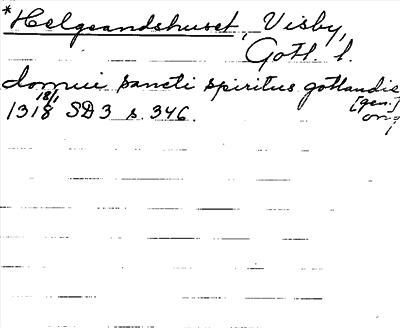 *Helgeandshuset, Visby,
Gotl. l.
domui sancti spiritus gotlandie
[gen.]
18/1
1318 SD3 s. 346.
or?